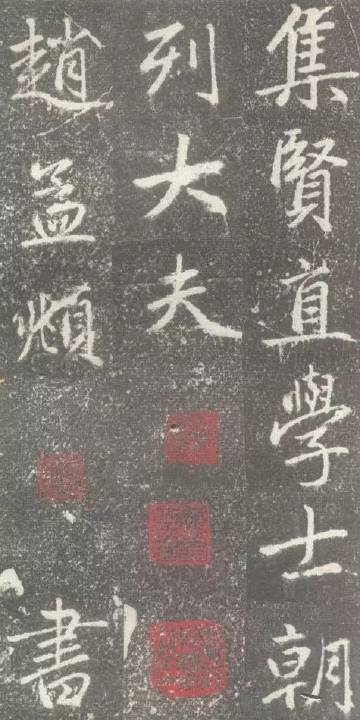 集賢直學士朝
列大夫
趙孟頫書